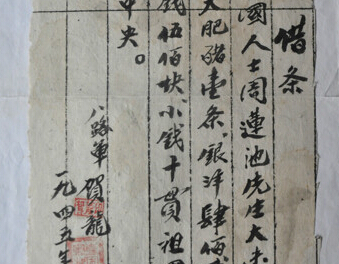 借条
國人士周蓮池先生大米
大肥豬壹条,銀洋肆佰
钱伍佰块小钱十贯祖国
中央。
八路軍賀龍
一九四五年